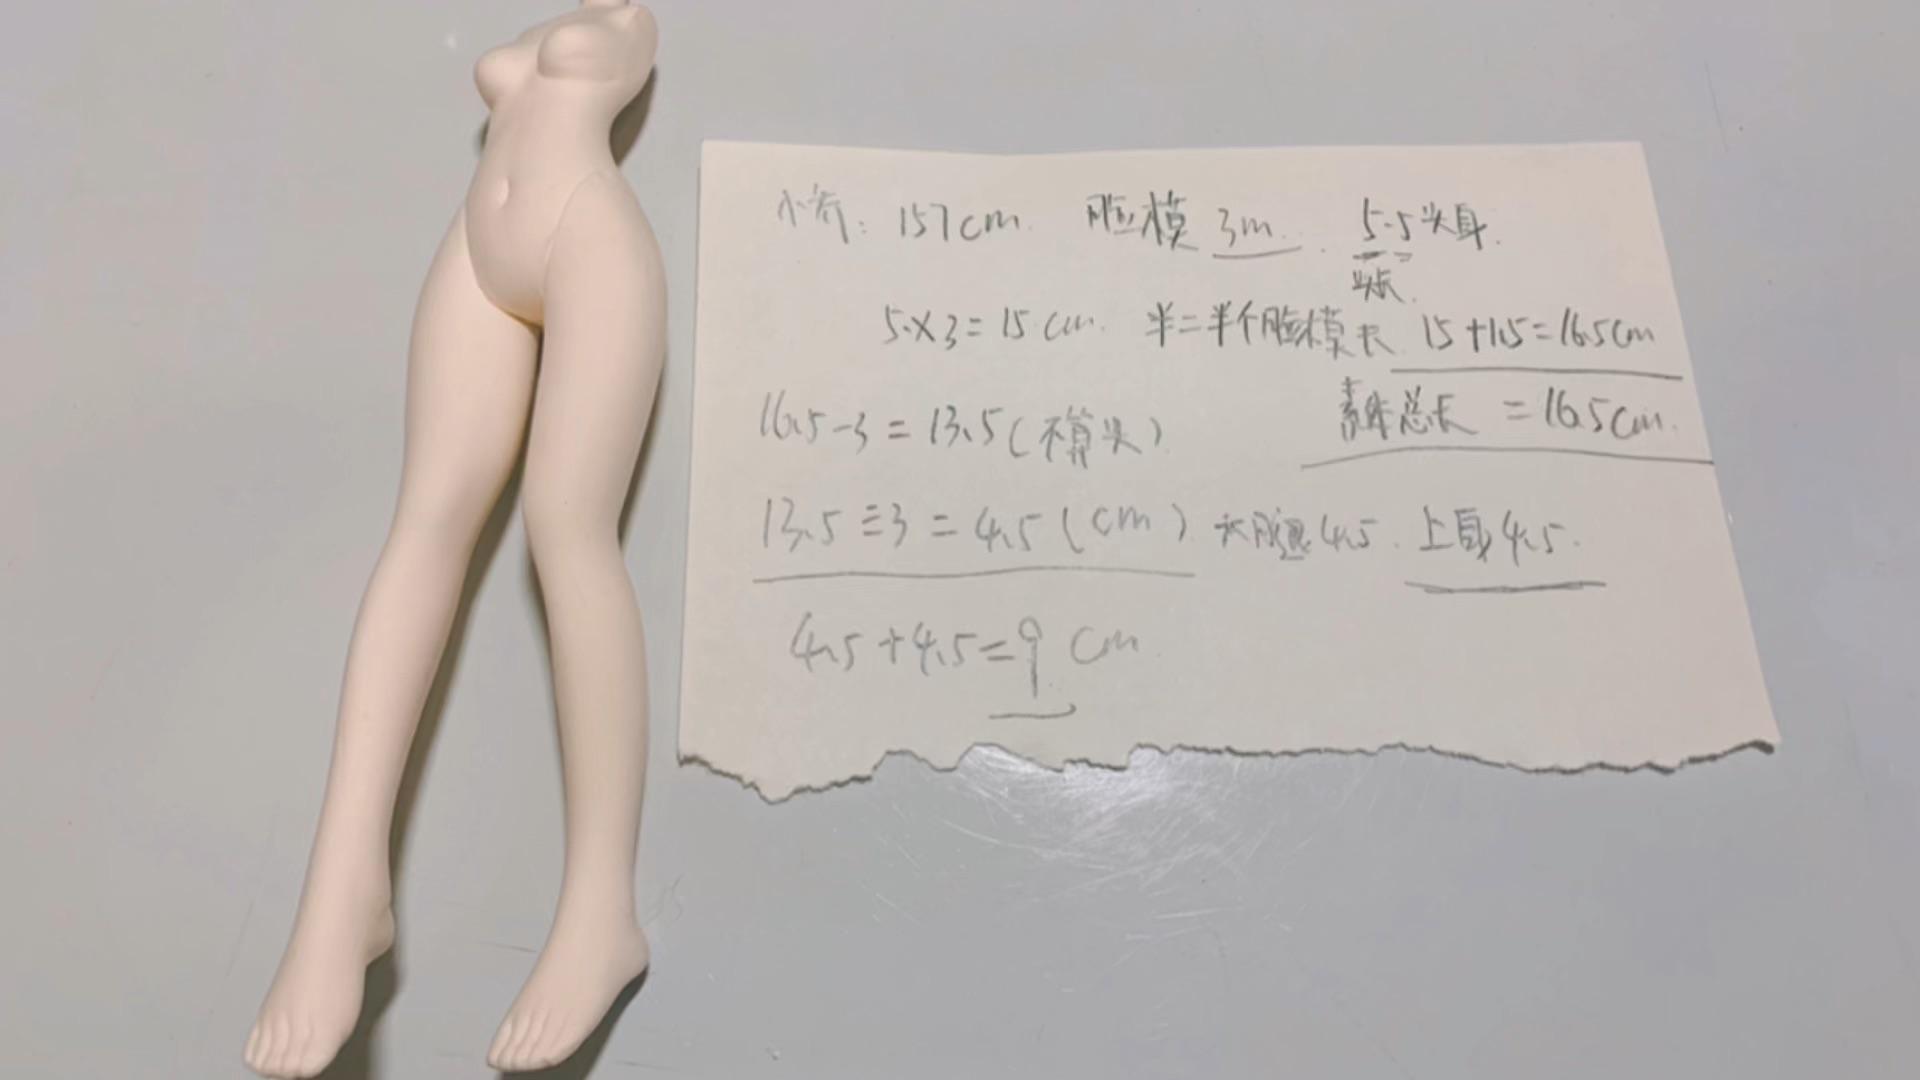 小乔: 157cm. 脸模 3m. 5.5头身.
头长.
5×3=15cm. 半=半个脸模长 15+1.5=16.5cm
16.5-3=13.5(不算头) 素体总长=16.5cm.
13.5÷3=4.5(cm) 大腿4.5. 上身4.5.
4.5+4.5=9cm